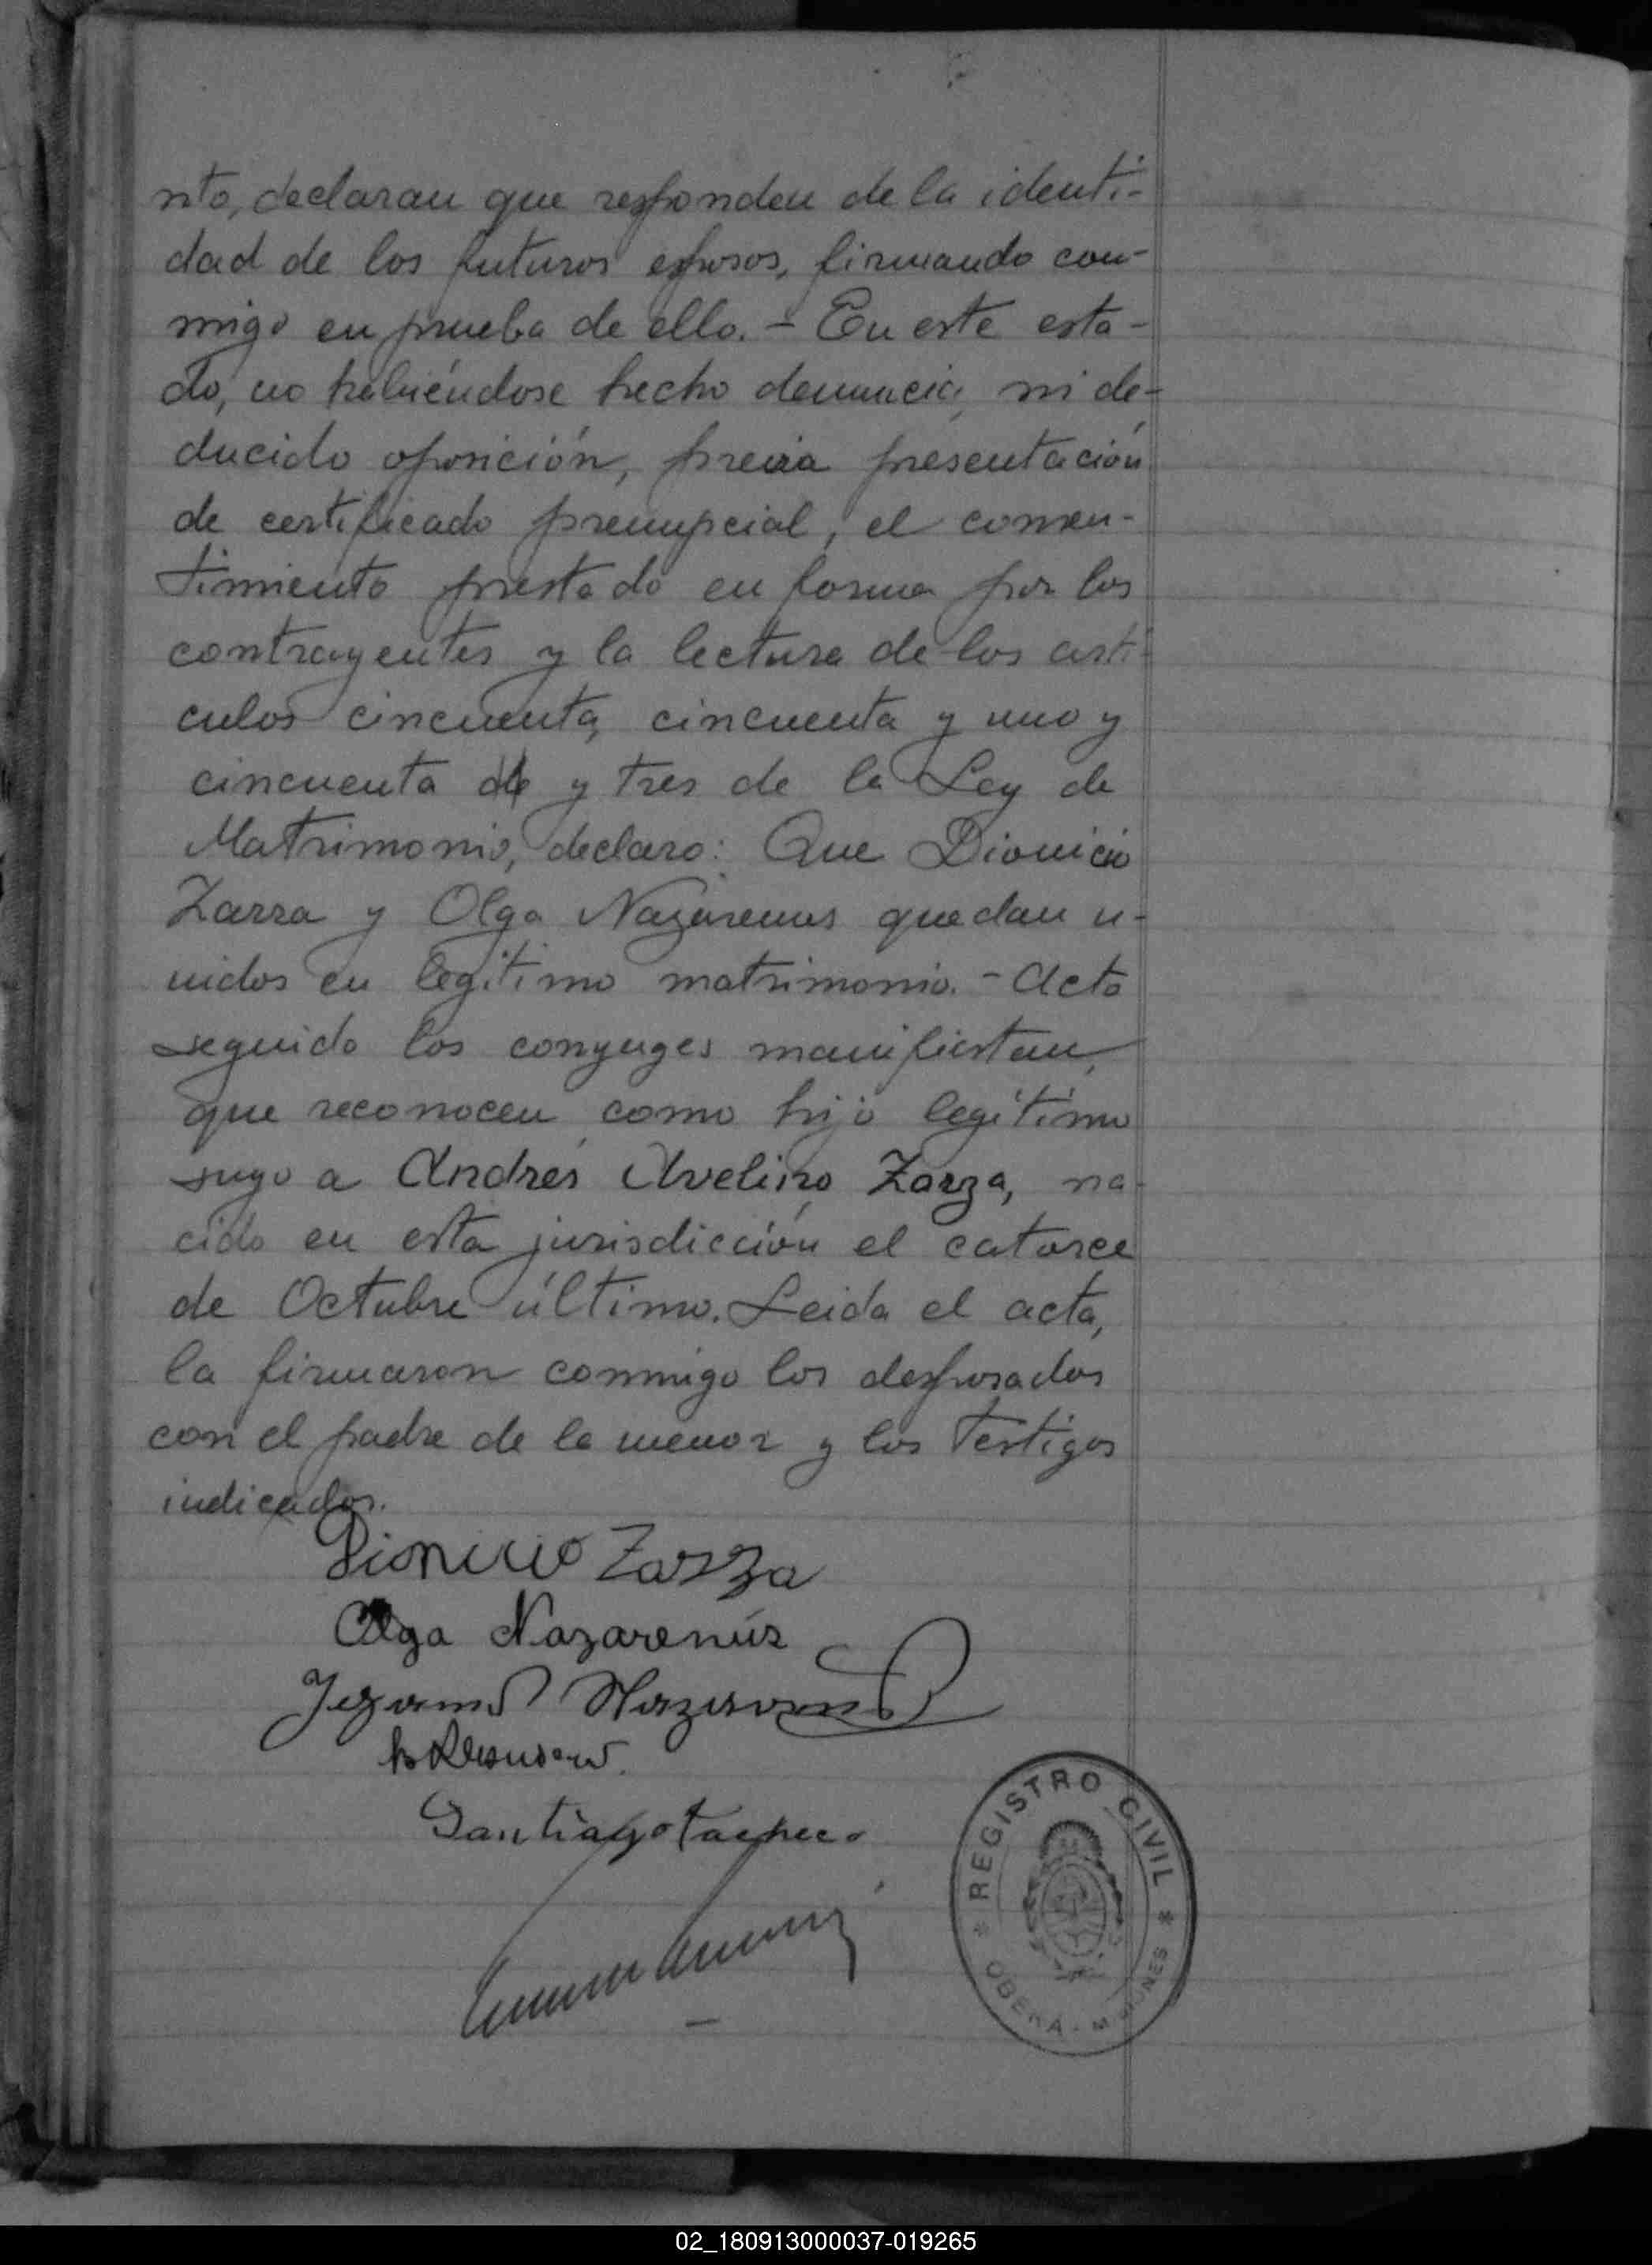 nto, declaran que responden de la identi-
dad de los futuros esposos, firmando con-
migo en prueba de ello. - En este esta-
do, no habiéndose hecho denuncia, ni de-
ducido oposición, previa presentación
de certificado prenupcial, el consen-
timiento prestado en forma por los
contrayentes y la lectura de los arti-
culos cincuenta, cincuenta y uno y
cincuenta y tres de la Ley de
Matrimonio, declaro: Que Dionicio
Zarza y Olga Nazarenus quedan u-
nidos en legítimo matrimonio. - Acto
seguido los conyuges manifiestan,
que reconocen como hijo legítimo
suyo a Andrés Avelino Zarza, na-
cido en esta jurisdicción el catorce
de Octubre último. Leida el acta,
la firmaron conmigo los desposados
con el padre de la menor y los testigos
indicados.
Dionicio Zarza
Olga Nazarenús
Santiago
REGISTRO CIVIL
OBERÁ - MISIONES
02_180913000037-019265